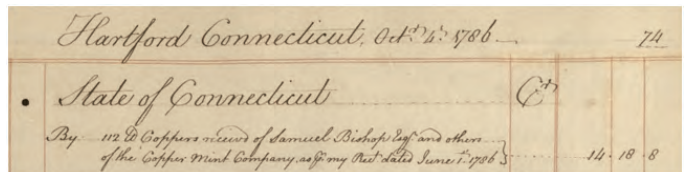 Hartford Connecticut, Octr. 4th. 1786 74
State of Connecticut Cr
By 112 lb Coppers receivd of Samuel Bishop Esqr. and others
of the Copper Mint Company, as pr. my Rect. dated June 1st. 1786 14 . 18 . 8